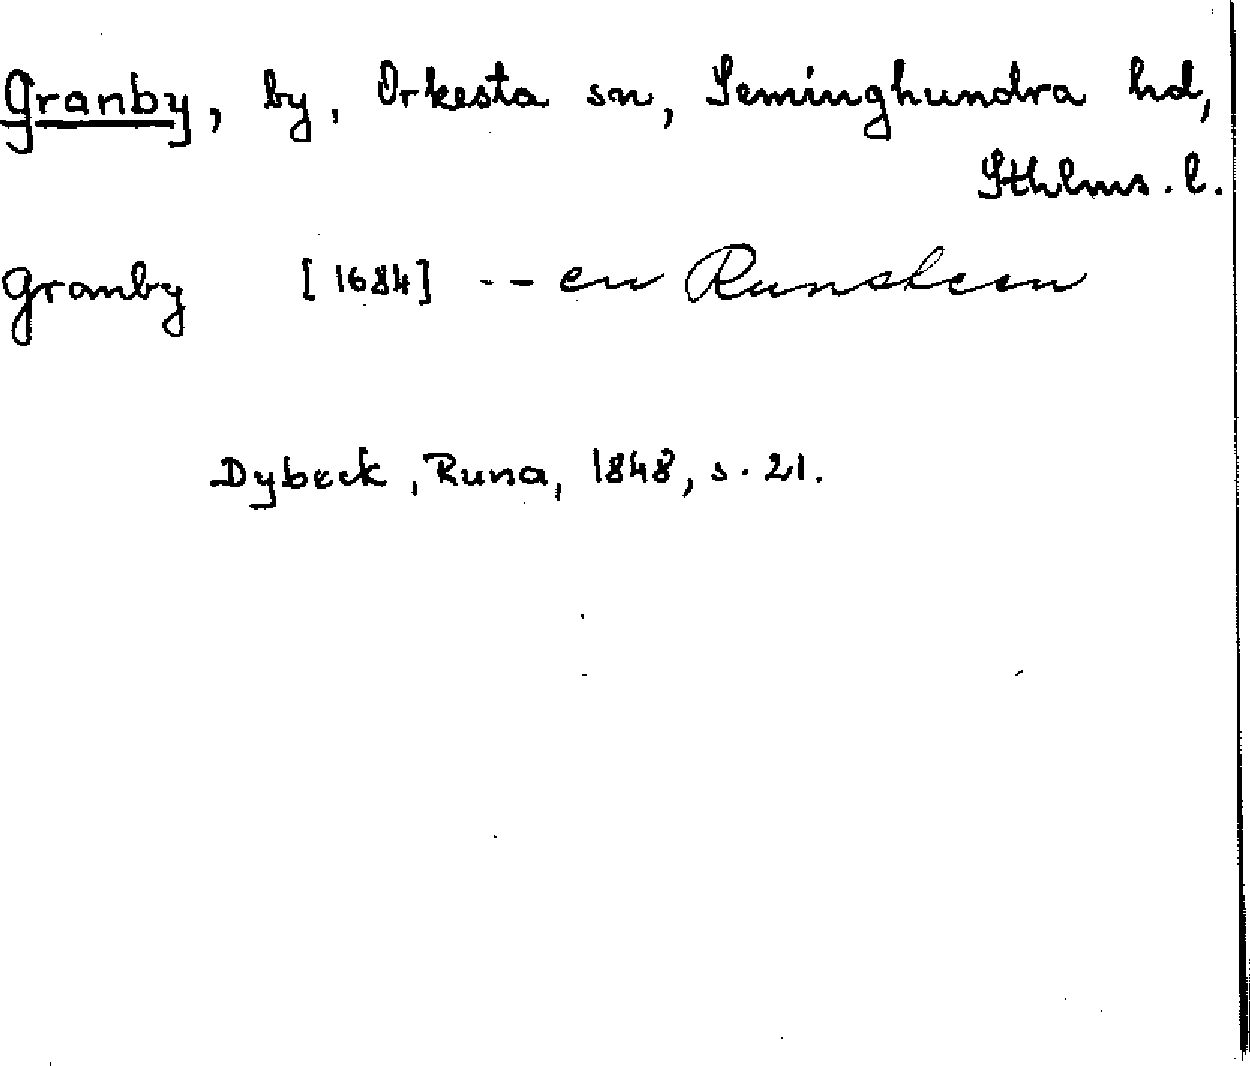 Granby, by, Orkesta sn, Seminghundra hd,
Sthlms. l.
Granby [1684] -- en Runsteen
Dybeck, Runa, 1848, s. 21.